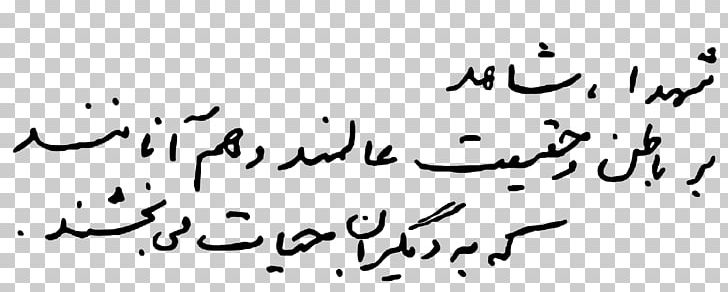 شهدا، شاهد
بر باطن و حقیقت عالمند و هم آنانند
که به دیگران حیات می‌بخشند.